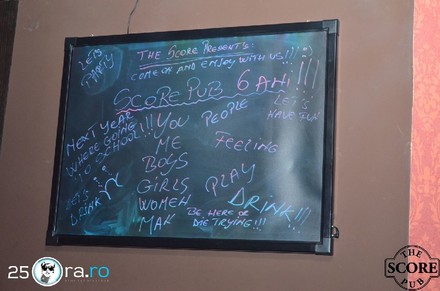 LET'S
PARTY
THE SCORE PRESENT'S
COME ON AND ENJOY WITH US!!! :)
SCORE PUB 6 ANI!!!
LET'S
HAVE FUN
NEXT YEAR
WHERE GOING
TO SCHOOL!!!
YOU PEOPLE
ME FEELING
BOYS
GIRLS PLAY
WOMEN DRINK!!!
MAN
LET'S
DRINK
BE HERE OR
DIE TRYING!!!
25 ora.ro
THE
SCORE
PUB